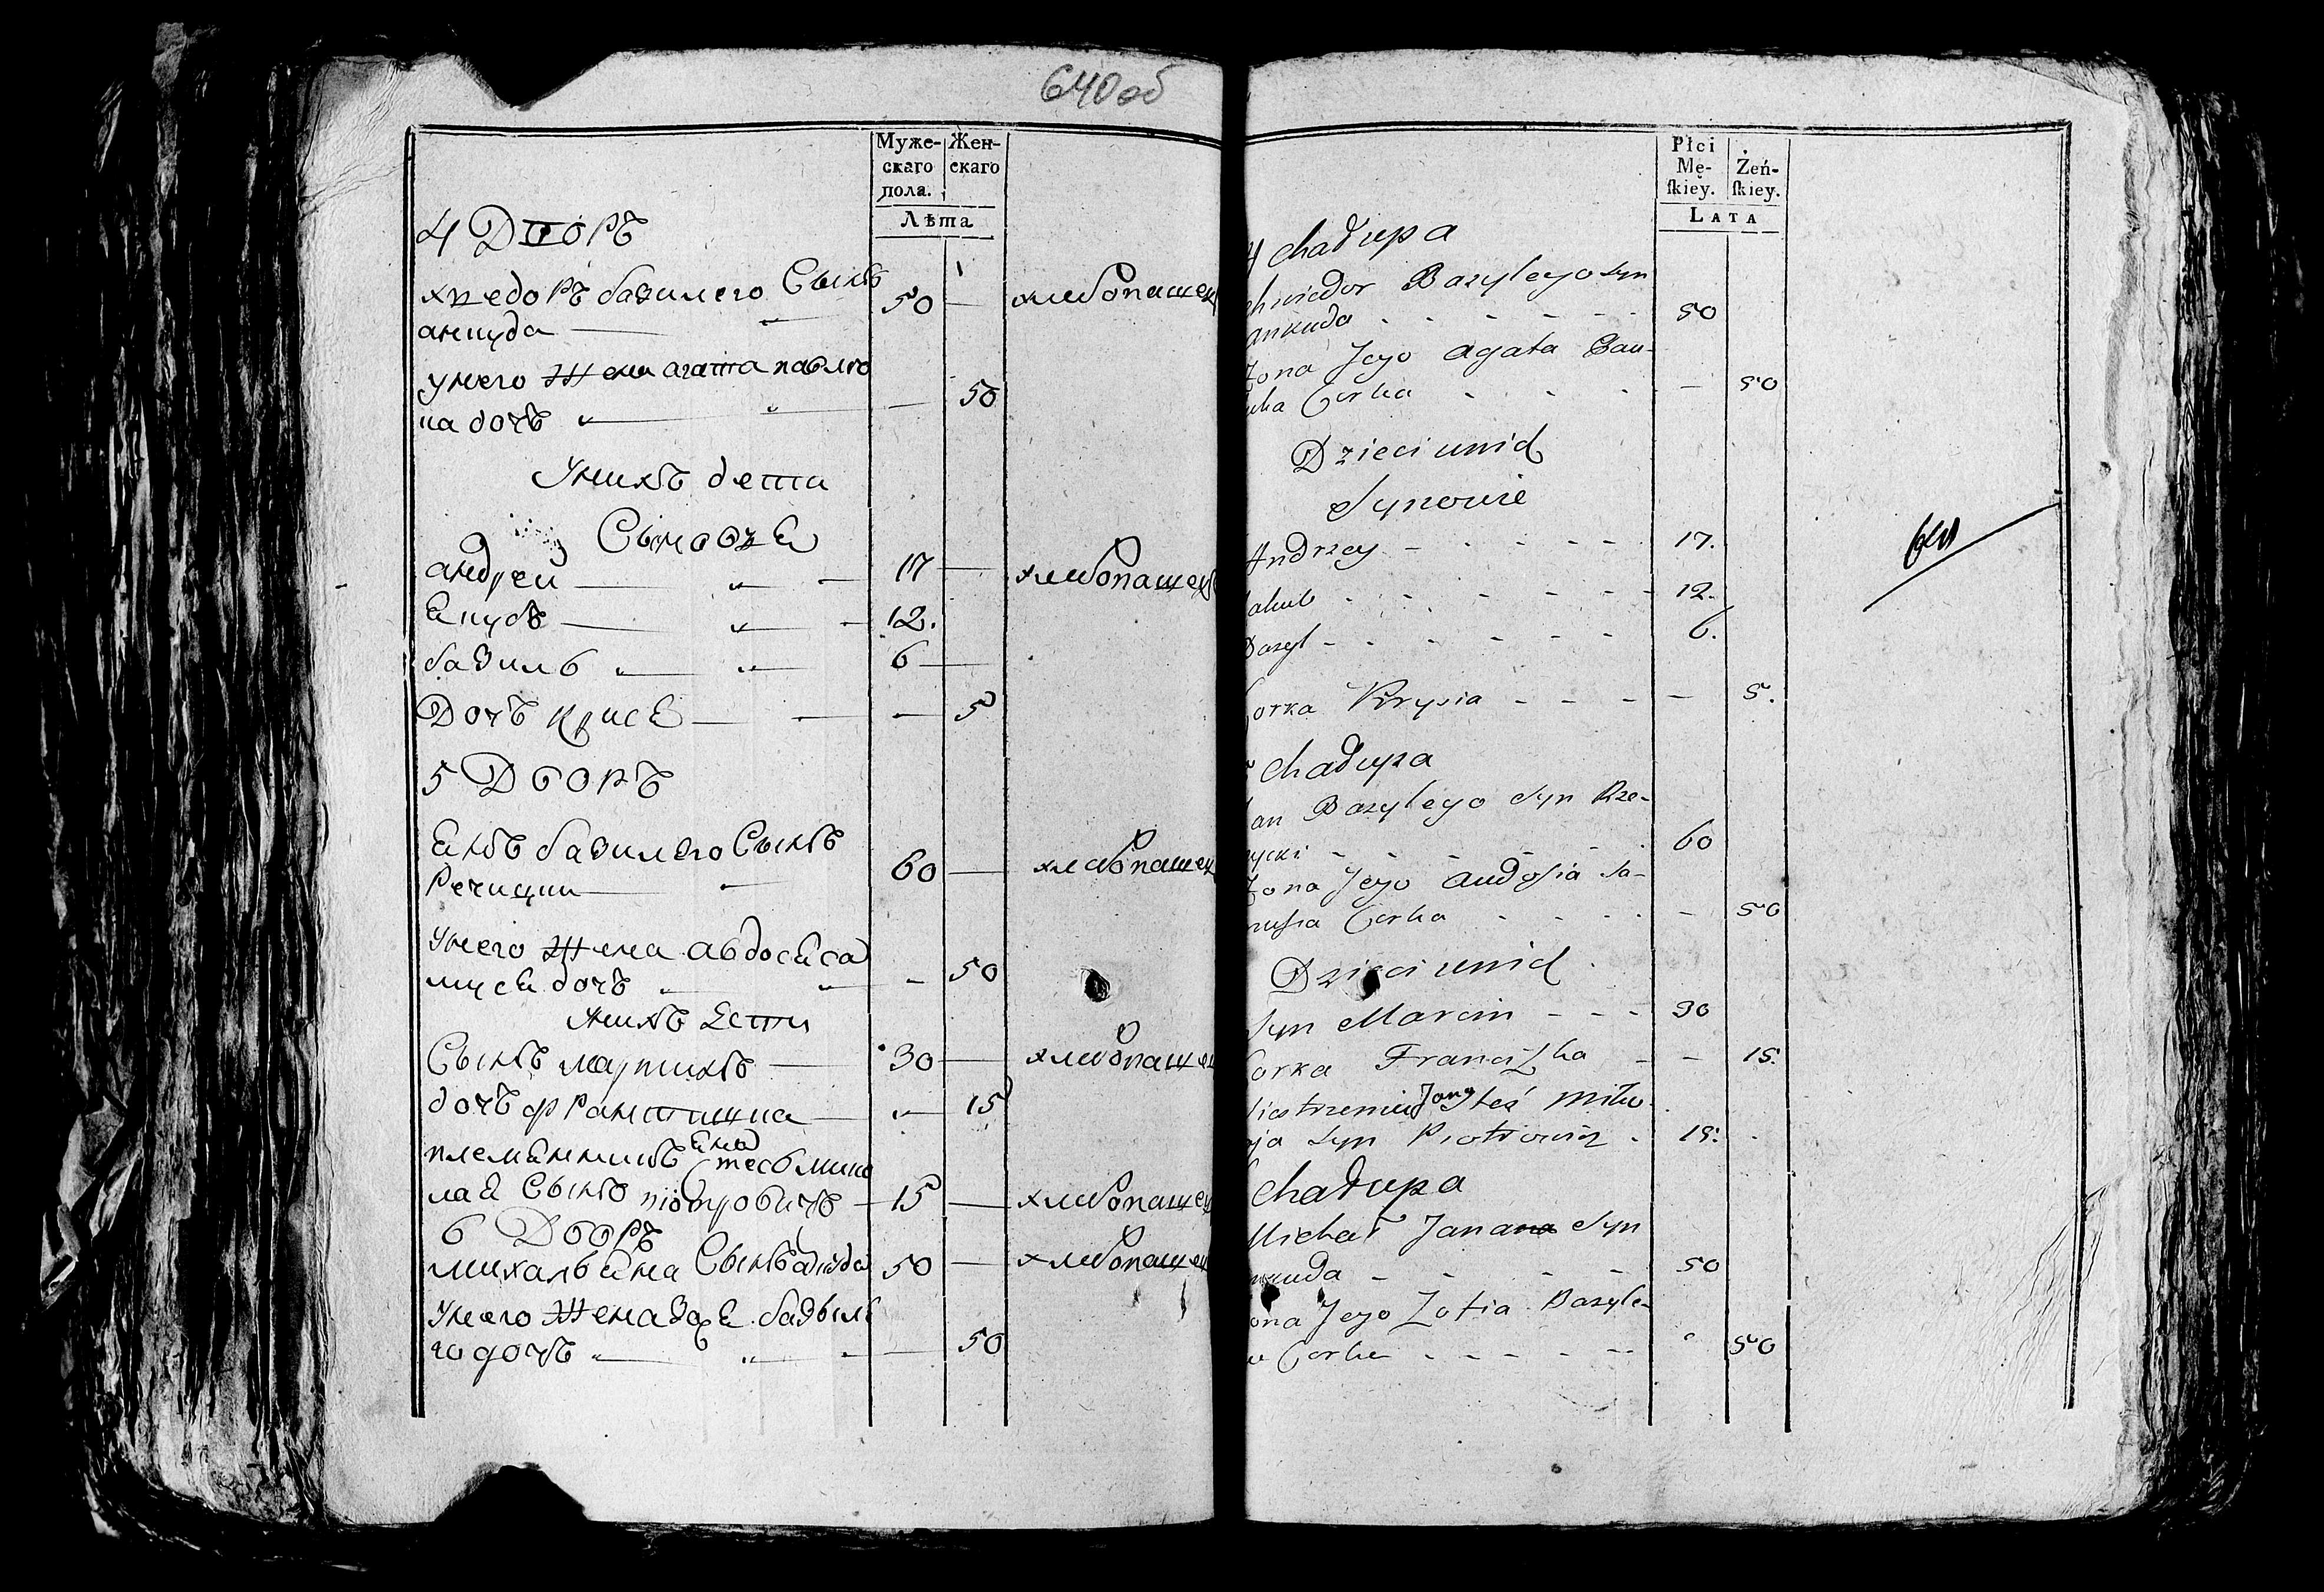 640об
Муже-
скаго
пола.
Жен-
скаго
Лѣта
4 Дворъ
хведоръ базилего Сынъ 50 — хлебопашец
анкуда
унего Жена агата павлю
ка дочь — 50
Унихъ дети
Сыновъя
андрей 17 — хлебопашец
Якубъ 12.
базиль 6 —
Дочъ крися — 5
5 Дворъ
Янъ базилего Сынъ
Речицки 60 — хлебопашец
Унего Жена авдося са
муся дочъ — 50
Унихъ дети
Сынъ мартинъ 30 — хлебопашец
дочъ францишка 15
Яна
племянникъ стесь мико
лая Сынъ піотровичъ 15 — хлебопашец
6 Дворъ
михаль яна Сынъ анкуда 50 — хлебопашец
Унего Жена Зофя базыле
го дочъ — 50
Płci
Mę-
ſkiey.
Żeń-
ſkiey.
LATA
4 Chałupa
Chwiedor Bazylego Syn
ankuda 50
Żona Jego Agata Pau-
luka Corka — 50
Dzieci unich
Synowie
Andrzey 17.
Jakub 12.
Bazyl 6.
Corka Krysia — 5.
640
Chałupa
Jan Bazylego Syn Rze-
zycki 60
Żona Jego Audosia Sa-
musia Corka — 50
Dzieci unich
Syn Marcin 30
Corka Franciszka — 15.
Jana
Siestrzeniec Steś Miko-
aja Syn Piotrowicz 15.
Chałupa
Michał Jana Syn
ankuda 50
Żona Jego Zofia Bazyle-
go Corka 50